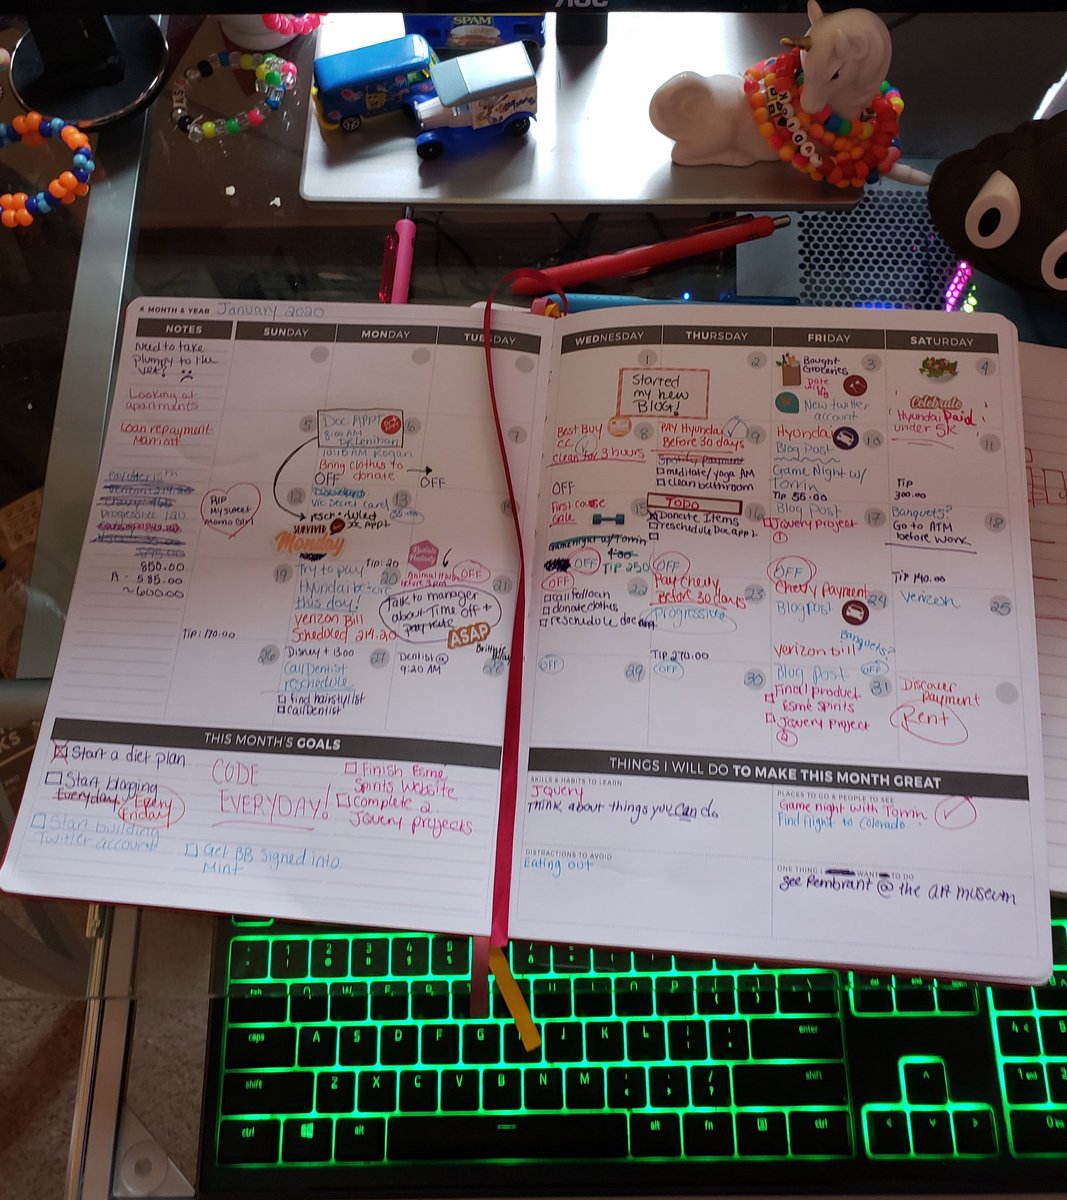 AOC
SPAM
A MONTH & YEAR January 2020
NOTES
SUNDAY
MONDAY
TUESDAY
WEDNESDAY
THURSDAY
FRIDAY
SATURDAY
Need to take
Plumpy to the
vet!
Looking at
apartments
Loan repayment
Marriott
Progressive 120
850.00
A - 585.00
~600.00
RIP
My sweet
Momo Girl
5
DOC APPT
8:00 AM
Delenihan
6
10:10 AM Rogan
Bring clothes to
OFF donate
OFF
7
12
13
Vic Secret card
resch.duled
DC Appt
SURVIVED
Monday
Tip: 20
Animal Hosp
before 3pm
OFF
19
20
21
Try to pay
Hyundai before
this day!
Verizon Bill
Scheduled 214.20
Talk to manager
about Time off +
pay rate
ASAP
Tip: 170.00
26
27
28
Disney + 1300
Call Dentist
reschedule
find hairstylist
call Dentist
Dentist @
9:20 AM
1
2
3
4
Started
my new
BLOG!
Bought
Groceries
Date
New twitter
account
Celebrate
Hyundai Paid
under 5K
8
Best Buy
CC
clean for 3 hours
OFF
9
PAY Hyundai
Before 30 days
Spotify Payment
meditate/yoga AM
clean bathroom
10
Hyundai
Blog Post
Game Night w/
Tomin
Tip 55.00
11
Tip
300.00
15
First course
Game night w/ Tomin
400
OFF
Tip 250
16
TODO
Donate Items
reschedule Doc appt
OFF
17
Blog Post
Jquery project
1
OFF
18
Banquets?
Go to ATM
before work
Tip 140.00
22
OFF
call fed loan
donate clothes
reschedule doc
23
Pay Chevy
Before 30 days
Progressive
Tip 270.00
24
Chevy Payment
Blog post
Banquets?
verizon bill
25
Verizon
29
OFF
30
OFF
31
Blog Post
OFF
Final product
Esmé Spirits
Jquery project
2
Discover
Payment
Rent
THIS MONTH'S GOALS
Start a diet plan
Start blogging
Everyday/Every
Friday
Start building
Twitter account
CODE
EVERYDAY!
Get BB signed into
Mint
Finish Esmé
Spirits Website
Complete 2
Jquery projects
THINGS I WILL DO TO MAKE THIS MONTH GREAT
SKILLS & HABITS TO LEARN
JQuery
Think about things you can do
DISTRACTIONS TO AVOID
Eating out
PLACES TO GO & PEOPLE TO SEE
Game night with Tomin
Find flight to Colorado
ONE THING I WANT TO DO
See Rembrant @ the art museum
1 2 3 4 5
Q W E R
caps A S D F G J K L enter
shift Z X C V D N M shift
ctrl alt alt fn ctrl